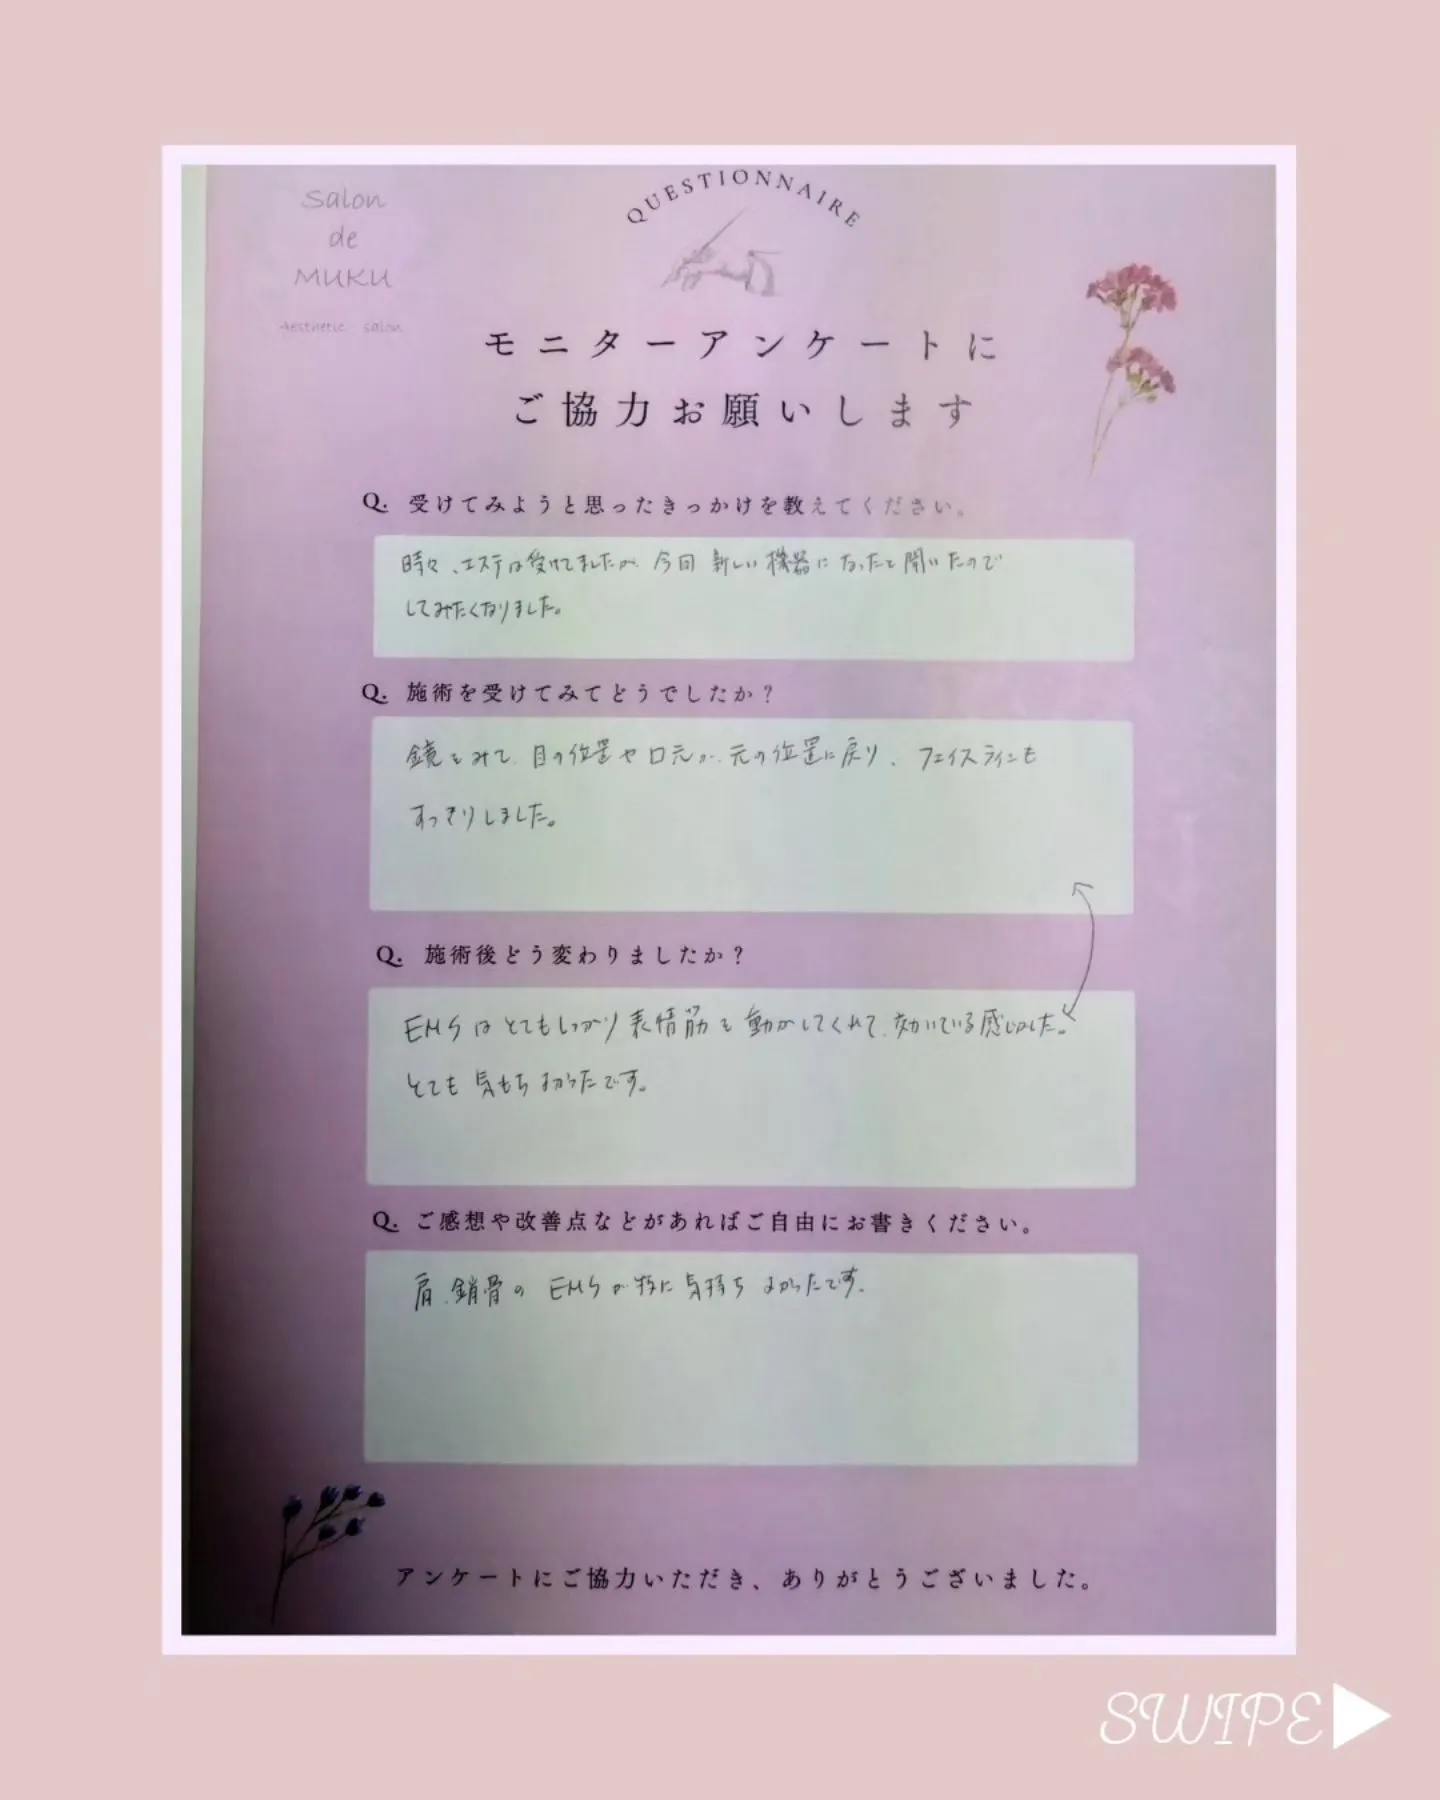 Salon
de
MUKU
Aesthetic salon
QUESTIONNAIRE
モニターアンケートに
ご協力お願いします
Q. 受けてみようと思ったきっかけを教えてください。
時々、エステは受けてましたが、今回 新しい機器になったと聞いたので
してみたくなりました。
Q. 施術を受けてみてどうでしたか？
鏡をみて、目の位置や口元が、元の位置に戻り、フェイスラインも
すっきりしました。
Q. 施術後どう変わりましたか？
EMSはとてもしっかり表情筋を動かしてくれて、効いている感じがした。
とても気もちよかったです。
Q. ご感想や改善点などがあればご自由にお書きください。
肩、鎖骨の EMSが特に気持ちよかったです。
アンケートにご協力いただき、ありがとうございました。
SWIPE